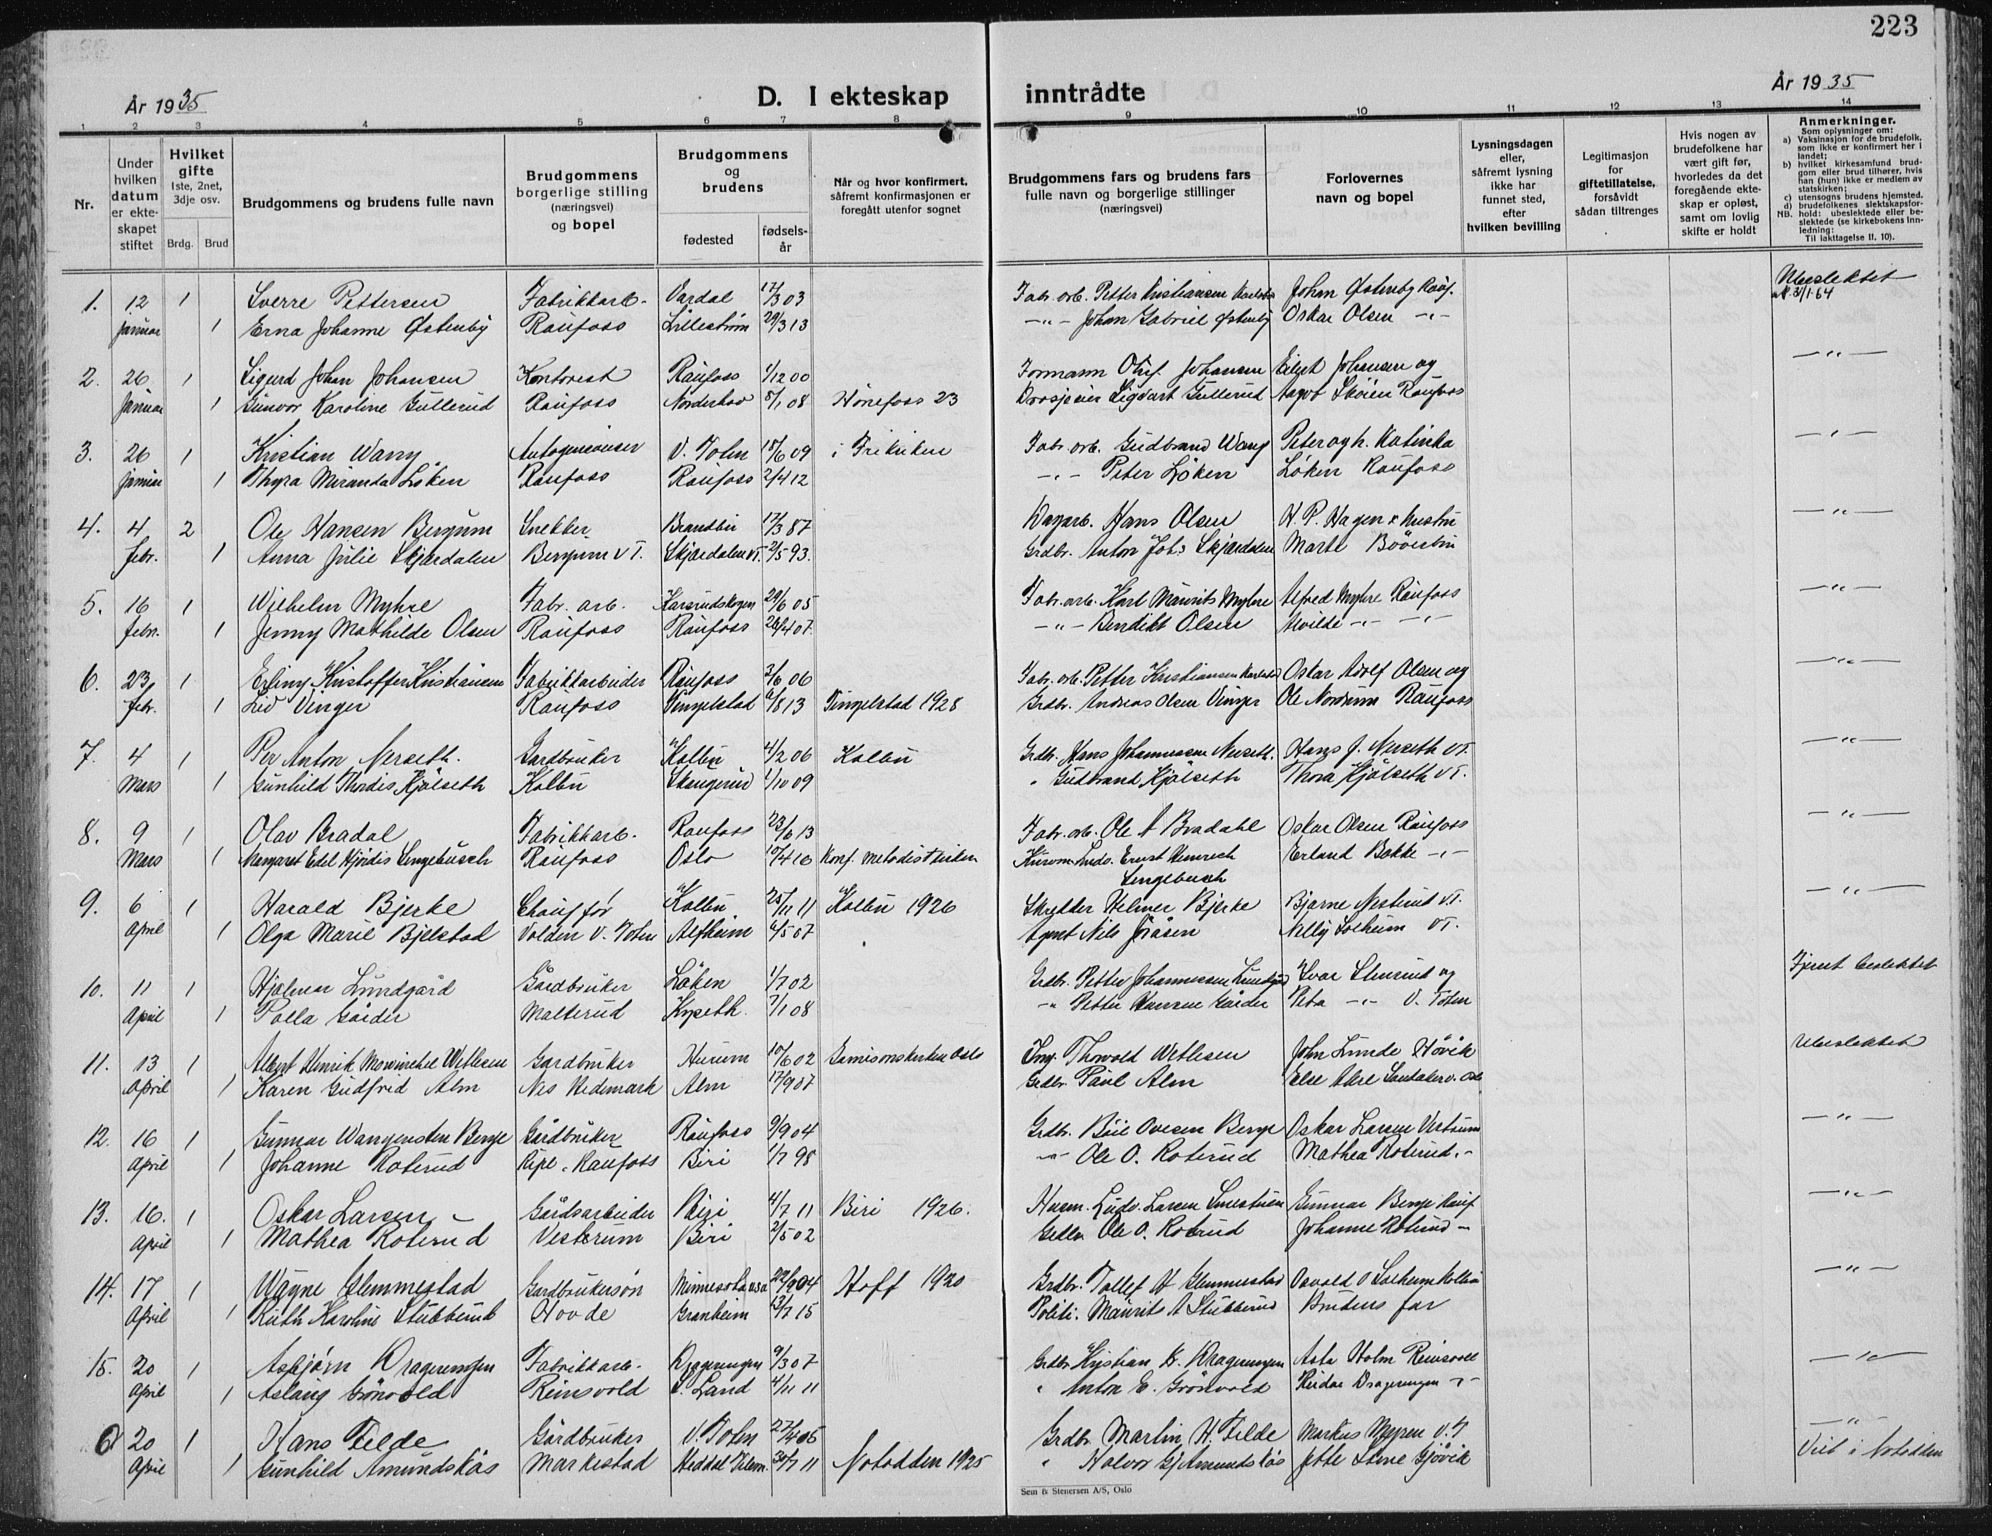 223
År 1935
D. I ekteskap inntrådte
År 1935
1 2 3 4 5 6 7 8 9 10 11 12 13 14
Nr.
Under hvilken datum er ekteskapet stiftet
Hvilket gifte
1ste, 2net, 3dje osv.
Brdg. Brud
Brudgommens og brudens fulle navn
Brudgommens borgerlige stilling (næringsvei) og bopel
Brudgommens og brudens
fødested
fødselsår
Når og hvor konfirmert, såfremt konfirmasjonen er foregått utenfor sognet
Brudgommens fars og brudens fars fulle navn og borgerlige stillinger (næringsvei)
Forlovernes navn og bopel
Lysningsdagen eller, såfremt lysning ikke har funnet sted, efter hvilken bevilling
Legitimasjon for giftetillatelse, forsåvidt sådan tiltrenges
Hvis nogen av brudefolkene har vært gift før, hvorledes da det foregående ekteskap er opløst, samt om lovlig skifte er holdt
Anmerkninger.
Som oplysninger om:
a) Vaksinasjon for de brudefolk, som ikke er konfirmert her i landet;
b) hvilket kirkesamfund brudgom eller brud tilhører, hvis han (hun) ikke er medlem av statskirken;
c) utensogns brudens hjemsted.
d) brudefolkenes slektskapsforhold: ubeslektede eller beslektede (se kirkebokens Innledning:
NB.
Til iakttagelse II. 10).
1. 12 1 Sverre Pettersen Fabrikkarb. Vardal 17/3 03 Fabr. arb. Petter Kristiansen Johan Østenby Rauf. Ubeslektet
januar 1 Erna Johanne Østenby Raufoss Lillestrøm 29/3 13 -"- Johan Gabriel Østenby Oskar Olsen -"-
2. 26 1 Sigurd Johan Johansen Kontorist Raufoss 1/12 00 Formann Oluf Johansen Johansen og -"-
januar 1 Gunvor Karoline Gullerud Raufoss Norderhov 8/1 08 Hønefoss 23 Sigvart Gullerud Aagot Skøien Raufoss
3. 26 1 Kristian Wang V. Toten 18/6 09 i Frikirken Fabr. arb. Gudbrand Wang Peter og h. Katinka -"-
januar 1 Thyra Miranda Løken Raufoss Raufoss 2/4 12 -"- Peter Løken Løken Raufoss
4. 4 2 Ole Hansen Bergum Snekker Brandbu 17/3 87 Hans Olsen H. P. Hagen -"-
febr. 1 Anna Julie Skjærdalen Bergum V T. Skjærdalen VT. 2/5 93. Grdbr. Anton Joh.s Skjærdalen Marte
5. 16 1 Wilhelm Myhre Fabr. arb. 29/6 05 Fabr. arb. Karl Maurits Myhre Alfred Myhre Raufoss -"-
febr. 1 Jenny Mathilde Olsen Raufoss Raufoss 4 07 -"- Bendikt Olsen Alvilde -"- -"-
6. 23 1 Erling Kristoffer Kristiansen Fabrikkarbeider Raufoss 3/6 06 Fabr. arb. Petter Kristiansen Oskar Adolf Olsen og -"-
febr. 1 Liv Vinger Raufoss Tingelstad 8 13 Tingelstad 1928 Grdbr. Andreas Olsen Vinger Ole Nordrum Raufoss
7. 4 1 Per Anton Nerseth Gardbruker Kolbu 4/2 06 Kolbu Grdbr. Hans Johannessen Nerseth. Hans J. Nerseth VT. -"-
Mars 1 Gunhild Thordis Hjølseth Kolbu 1/10 09 " Gudbrand Hjølseth Thora Hjølseth VT.
8. 9 1 Olav Bradal Fabrikkarb. Raufoss 23/6 13 Fabr. arb. Ole A Bradahl Oskar Olsen Raufoss -"-
Mars 1 Margaret Edel Hjørdis Lengebusch Raufoss Oslo 10/4 16 Konf. Metodistkirken Ernst Heinrich Erland Bakke -"-
Lengebusch
9. 6 1 Harald Bjerke Chauffør Kolbu 25/11 11 Kolbu 1926 Skredder Helmer Bjerke Bjarne Nesterud VT. -"-
April 1 Olga Marie Bjelstad Volden V. Toten Alfheim 5 07 Agent Nils Nelly Solheim VT.
10. 11 1 Hjalmar Lundgård Gårdbruker Løken 1/7 02 Grdbr. Petter Johannessen Lundgård Ivar og Fjernt beslektet
April 1 Palla Gaarder Malterud 7/1 08 -"- Petter Hansen Gaarder -"- V. Toten
11. 13 1 Albert Henrik Wetlesen Gardbruker Hurum 10/6 02 Garnisonskirken Oslo Ing. Thorvald Wetlesen John Lunde Høvik Ubeslektet
April 1 Karen Gudfrid Alm Nes Hedemark Alm 17/9 07 Grdbr Paul Alm Else
12. 16 1 Gunnar Wangensten Berge Gårdbruker Raufoss 9/9 04 Grdbr. Ovesen Berge Oskar Larsen Vestrum -"-
April 1 Johanne Roterud Raufoss Biri 1/7 98 -"- Ole O. Roterud Mathea Roterud. -
13. 16. 1 Oskar Larsen Gårdsarbeider Biri 4/7 11 Biri 1926. Husm. Ludv. Larsen Gunnar Berge Rauf. -"-
April 1 Mathea Roterud Vestrum Biri 2/5 02 Grdbr. Ole O. Roterud Johanne Roterud -
14. 17 1 Wayne Glemmestad Gardbrukersøn Minnesota USA 22/9 04 Hoff 1920 Grdbr. Tollef H Glemmestad Osvald O Solheim Kolbu -"-
April 1 Ruth Karoline Stubberud Hovde Granheim 13/7 15 Politi. Maurits A Stubberud Brudens far
15. 20 1 Asbjørn Dragerengen Fabrikkarb. Dragerengen 9/3 07 Grdbr. Kristian K. Dragerengen Asta Holm Reinsvoll -"-
April 1 Aslaug Grönvold Reinsvold S. Land 4/11 11 " Anton E. Grönvold Dragerengen -"-
6 20 1 Hans Filde Gårdbruker V. Toten 27/4 06 Grdbr. Martin H. Filde Markus V.T -"-
April 1 Gunhild Amundskås Markestad Heddal 30/7 11 Notodden 1925 " Halvor Amundskås Jette Gjøvik Viet i Notodden
Sem & Stenersen A/S, Oslo